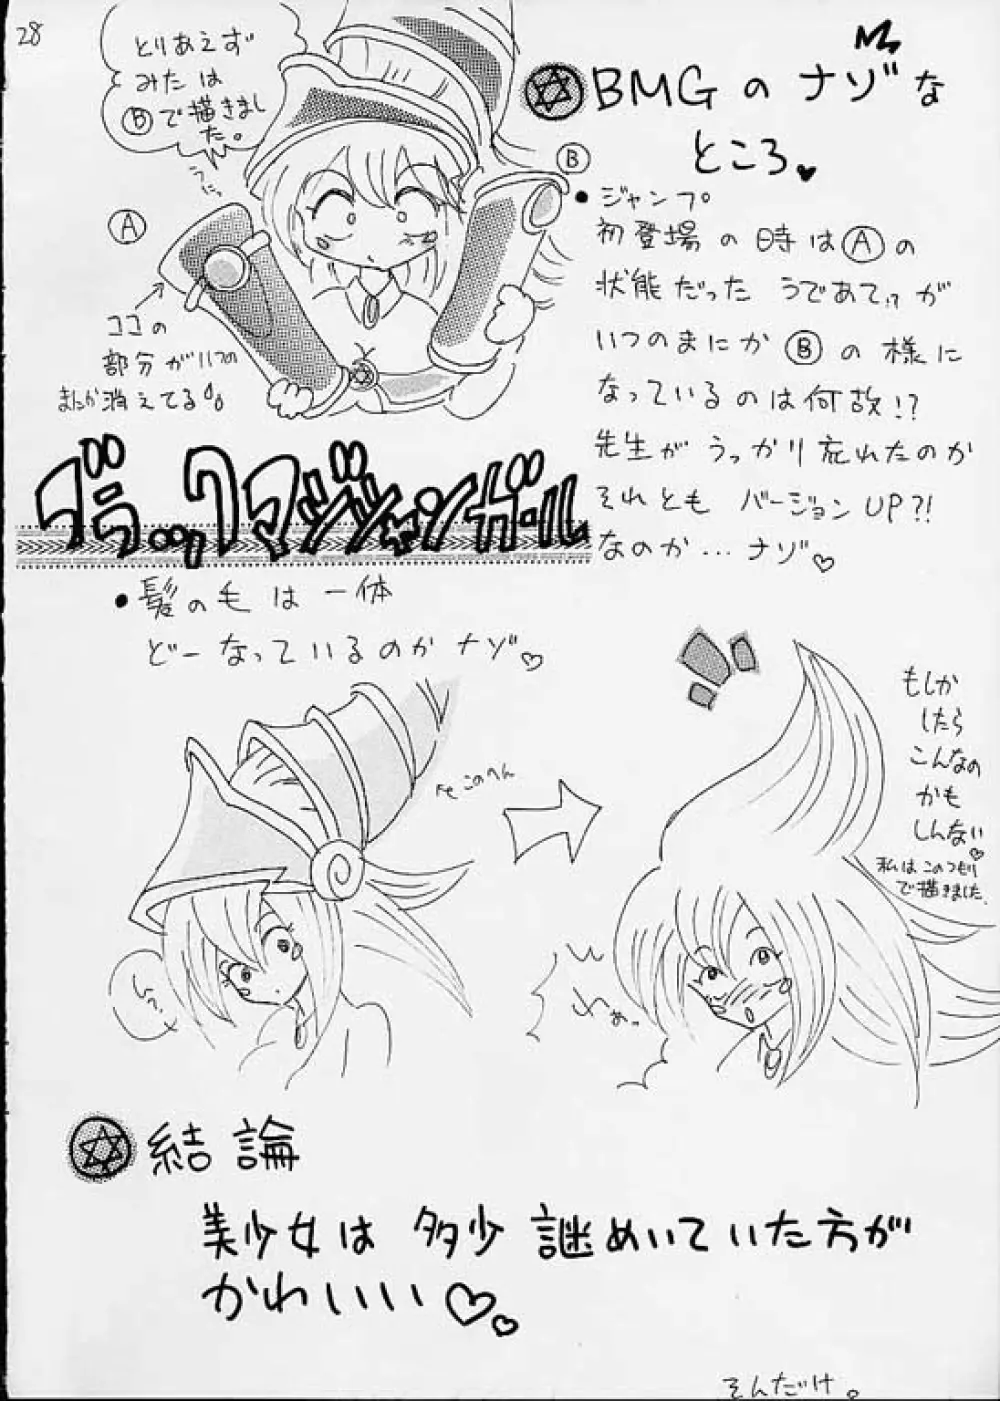 28
とりあえず
みたは
Ⓑで描きまし
た。
BMGのナゾな
ところ
Ⓐ
Ⓑ
ココの
部分がいつの
まにか消えてる
・ジャンプ
初登場の時はⒶの
状態だった うであて!?が
いつのまにかⒷの様に
なっているのは何故!?
先生がうっかり忘れたのか
それとも バージョンUP?!
なのか…ナゾ♡
ブラックマジシャンガール
・髪の毛は一体
どーなっているのかナゾ♡
このへん
もしか
したら
こんなの
かも
しんない♡
私はこのつもり
で描きました。
ん?
結論
美少女は 多少 謎めいていた方が
かわいい♡
そんだけ。